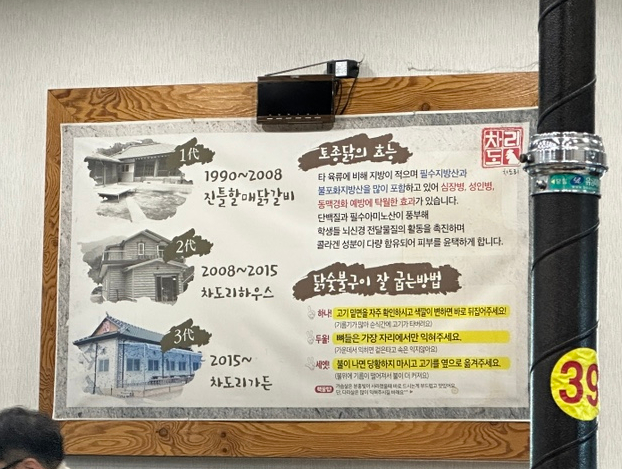 1代
1990~2008
진틀할매닭갈비
2代
2008~2015
차도리하우스
3代
2015~
차도리가든
차도리
차도리
토종닭의 효능
타 육류에 비해 지방이 적으며 필수지방산과
불포화지방산을 많이 포함하고 있어 심장병, 성인병,
동맥경화 예방에 탁월한 효과가 있습니다.
단백질과 필수아미노산이 풍부해
학생들 뇌신경 전달물질의 활동을 촉진하며
콜라겐 성분이 다량 함유되어 피부를 윤택하게 합니다.
닭숯불구이 잘 굽는방법
하나! 고기 밑면을 자주 확인하시고 색깔이 변하면 바로 뒤집어주세요!
(기름기가 많아 순식간에 고기가 타버려요)
두울! 뼈들은 가장 자리에서만 익혀주세요.
(가운데서 익히면 겉은타고 속은 익지않아요)
세엣! 불이 나면 당황하지 마시고 고기를 옆으로 옮겨주세요.
(불위에 기름이 떨어져서 불이 더 커져요)
39